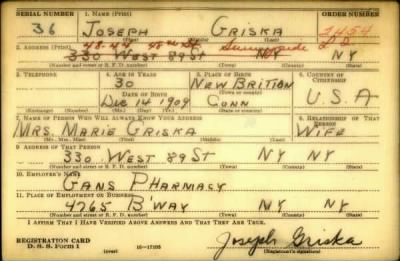 SERIAL NUMBER 1. NAME (Print) ORDER NUMBER
36 JOSEPH GRISKA 2454
(First) (Middle) (Last)
48-44 48th St Sunnyside L.I.
2. ADDRESS (Print)
330 WEST 89 ST NY NY
(Number and street or R. F. D. number) (Town) (County) (State)
3. TELEPHONE 4. AGE IN YEARS 5. PLACE OF BIRTH 6. COUNTRY OF CITIZENSHIP
30 NEW BRITION
DATE OF BIRTH (Town or county)
DEC 14 1909 CONN U.S.A
(Exchange) (Number) (Mo.) (Day) (Yr.) (State or country)
7. NAME OF PERSON WHO WILL ALWAYS KNOW YOUR ADDRESS 8. RELATIONSHIP OF THAT PERSON
MRS. MARIE GRISKA WIFE
(Mr., Mrs., Miss) (First) (Middle) (Last)
9. ADDRESS OF THAT PERSON
330 WEST 89 ST NY NY
(Number and street or R. F. D. number) (Town) (County) (State)
10. EMPLOYER'S NAME
GANS PHARMACY
11. PLACE OF EMPLOYMENT OR BUSINESS
4765 B'WAY NY NY
(Number and street or R. F. D. number) (Town) (County) (State)
I AFFIRM THAT I HAVE VERIFIED ABOVE ANSWERS AND THAT THEY ARE TRUE.
REGISTRATION CARD
D. S. S. Form 1 (over) 16-17105 Joseph Griska
(Registrant's signature)